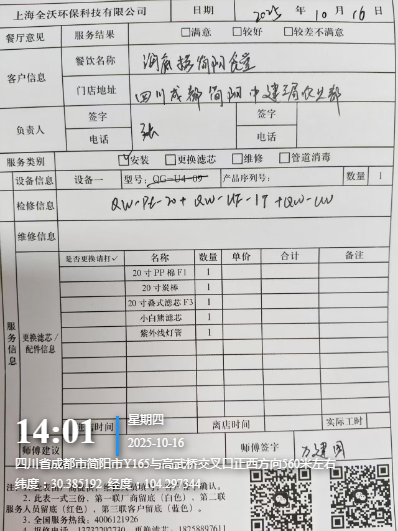 上海全沃环保科技有限公司 日期 2025年10月16日
餐厅意见 服务结果 □满意 □较好 □较差不满意
客户信息 餐饮名称
门店地址 四川成都简阳中建三局
负责人 签字 张 签字
电话 电话
服务类别 ☑安装 □更换滤芯 □维修 □管道消毒
设备信息 设备一 型号: QG-U4-09 产品序列号: 数量 1
检修信息 QW-PE-20+QW-UF-1T+QW-UV
维修信息
服务信息 更换滤芯/配件信息 是否更换请打✓ 名称 数量 单价 合计 备注
20寸PP棉F1 1
20寸炭棒 1
20寸叠式滤芯F3 1
小白熊滤芯 1
紫外线灯管 1
时间 离店时间 实际工时
师傅建议 师傅签字
14:01 星期四
2025-10-16
四川省成都市简阳市Y165与高武桥交叉口正西方向560米左右
纬度:30.385192 经度:104.297344
2. 此表一式三份，第一联厂商留底（白色）、第二联
服务人员留底（红色）、第三联客户留底（蓝色）。
3. 全国服务热线：4006121926